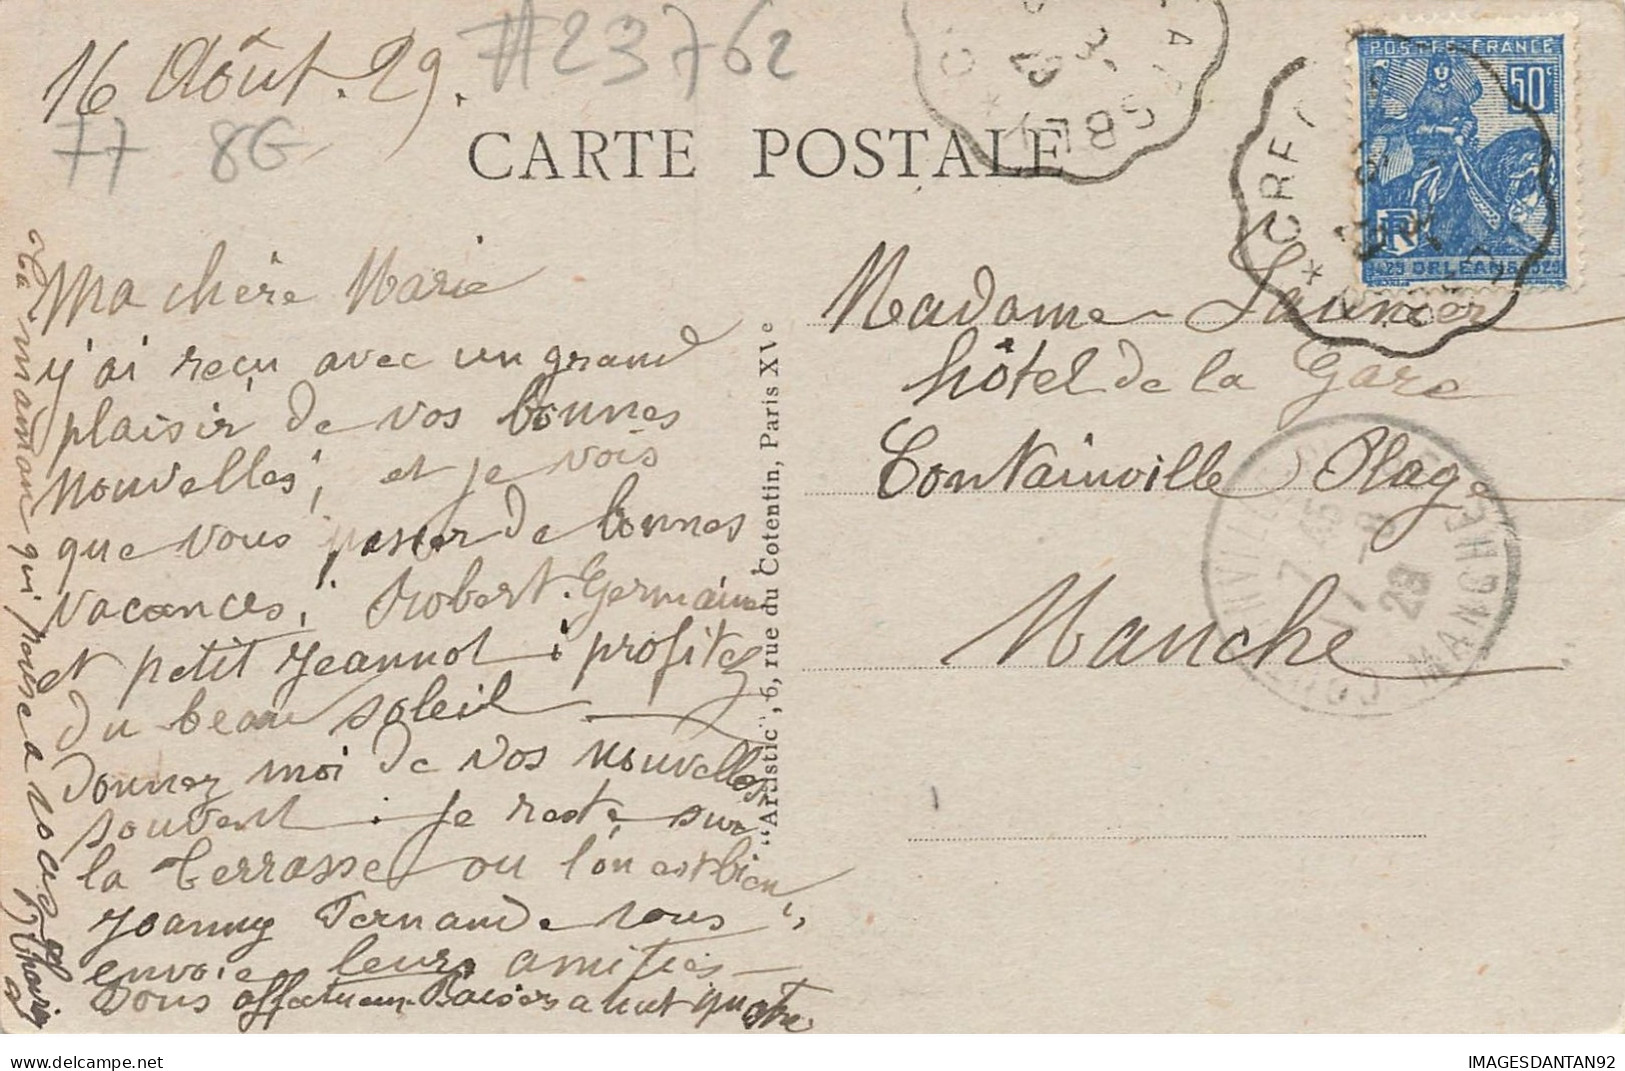 16 Août. 29.
#23762
77 8G
CARTE POSTALE
POSTES FRANCE
50c
1429 ORLEANS 1929
Ma chère Marie
j'ai reçu avec un grand
plaisir de vos bonnes
nouvelles, et je vois
que vous passer de bonnes
vacances, Robert. Germaine
et petit Jeannot profitez
du beau soleil
Donnez moi de vos nouvelles
souvent. Je reste sur
la terrasse ou l'on est bien,
Joanny Fernande vous
envoie leurs amitiés
Bons affectueux Baisers a vous quatre
ta maman qui pense a vous
"Artistic", 6, rue du Cotentin, Paris XVe
Madame Launer
hôtel de la Gare
Coutainville Plage
Manche
7 45
17 -8
29
MANCHE
IMAGESDANTAN92